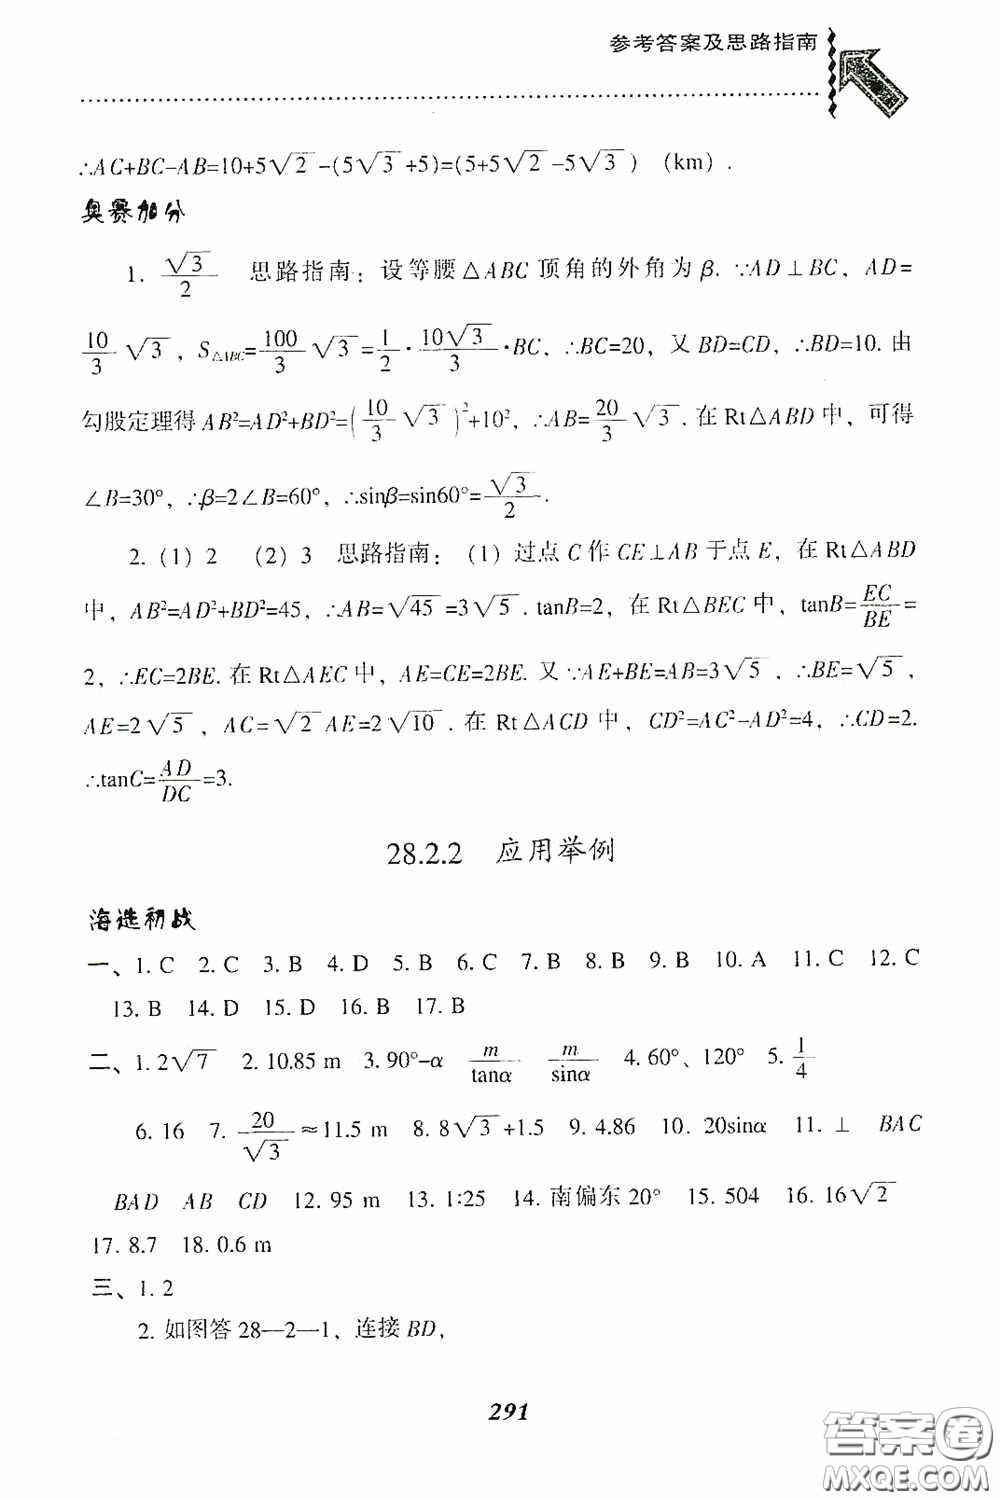 参考答案及思路指南
∴AC+BC-AB=10+5√2-(5√3+5)=(5+5√2-5√3) (km).
奥赛加分
1. √3/2 思路指南：设等腰△ABC顶角的外角为β. ∵AD⊥BC，AD=
10/3 √3，S△ABC=100/3 √3=1/2·10√3/3·BC，∴BC=20，又BD=CD，∴BD=10. 由
勾股定理得AB²=AD²+BD²=(10/3 √3)²+10²，∴AB=20/3 √3. 在Rt△ABD中，可得
∠B=30°，∴β=2∠B=60°，∴sinβ=sin60°=√3/2.
2. (1) 2 (2) 3 思路指南：(1) 过点C作CE⊥AB于点E，在Rt△ABD
中，AB²=AD²+BD²=45，∴AB=√45=3√5. tanB=2，在Rt△BEC中，tanB=EC/BE=
2，∴EC=2BE. 在Rt△AEC中，AE=CE=2BE. 又∵AE+BE=AB=3√5，∴BE=√5，
AE=2√5，AC=√2AE=2√10. 在Rt△ACD中，CD²=AC²-AD²=4，∴CD=2.
∴tanC=AD/DC=3.
28.2.2 应用举例
海选初战
一、1. C 2. C 3. B 4. D 5. B 6. C 7. B 8. B 9. B 10. A 11. C 12. C
13. B 14. D 15. D 16. B 17. B
二、1. 2√7 2. 10.85 m 3. 90°-α m/tanα m/sinα 4. 60°、120° 5. 1/4
6. 16 7. 20/√3≈11.5 m 8. 8√3+1.5 9. 4.86 10. 20sinα 11. ⊥ BAC
BAD AB CD 12. 95 m 13. 1:25 14. 南偏东20° 15. 504 16. 16√2
17. 8.7 18. 0.6 m
三、1. 2
2. 如图答28—2—1，连接BD，
291
答案卷
MXQE.COM